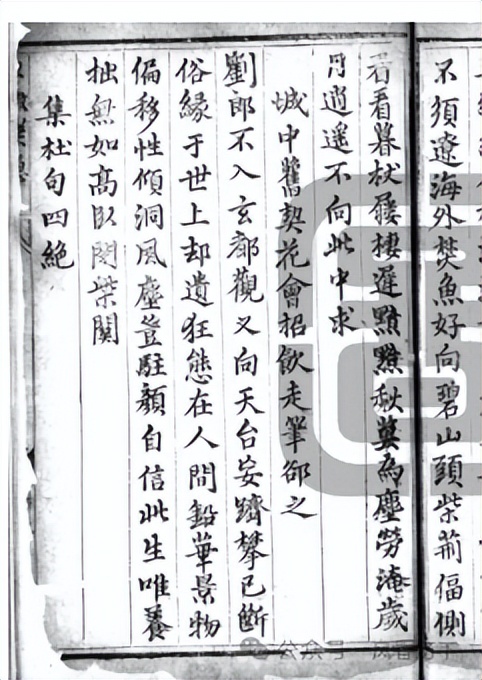 不須遼海外焚魚好向碧山頭柴荊偪側
看看暮杖屨棲遲點點秋莫為塵勞淹歲
月逍遥不向此中求
城中舊契花會招飲走筆卻之
劉郎不入玄都觀又向天台妄躋攀已斷
俗緣于世上却遺狂態在人間鉛華景物
偏移性傾洞風塵豈駐顏自信此生唯養
拙無如高臥閉柴關
集杜句四絕
公众号